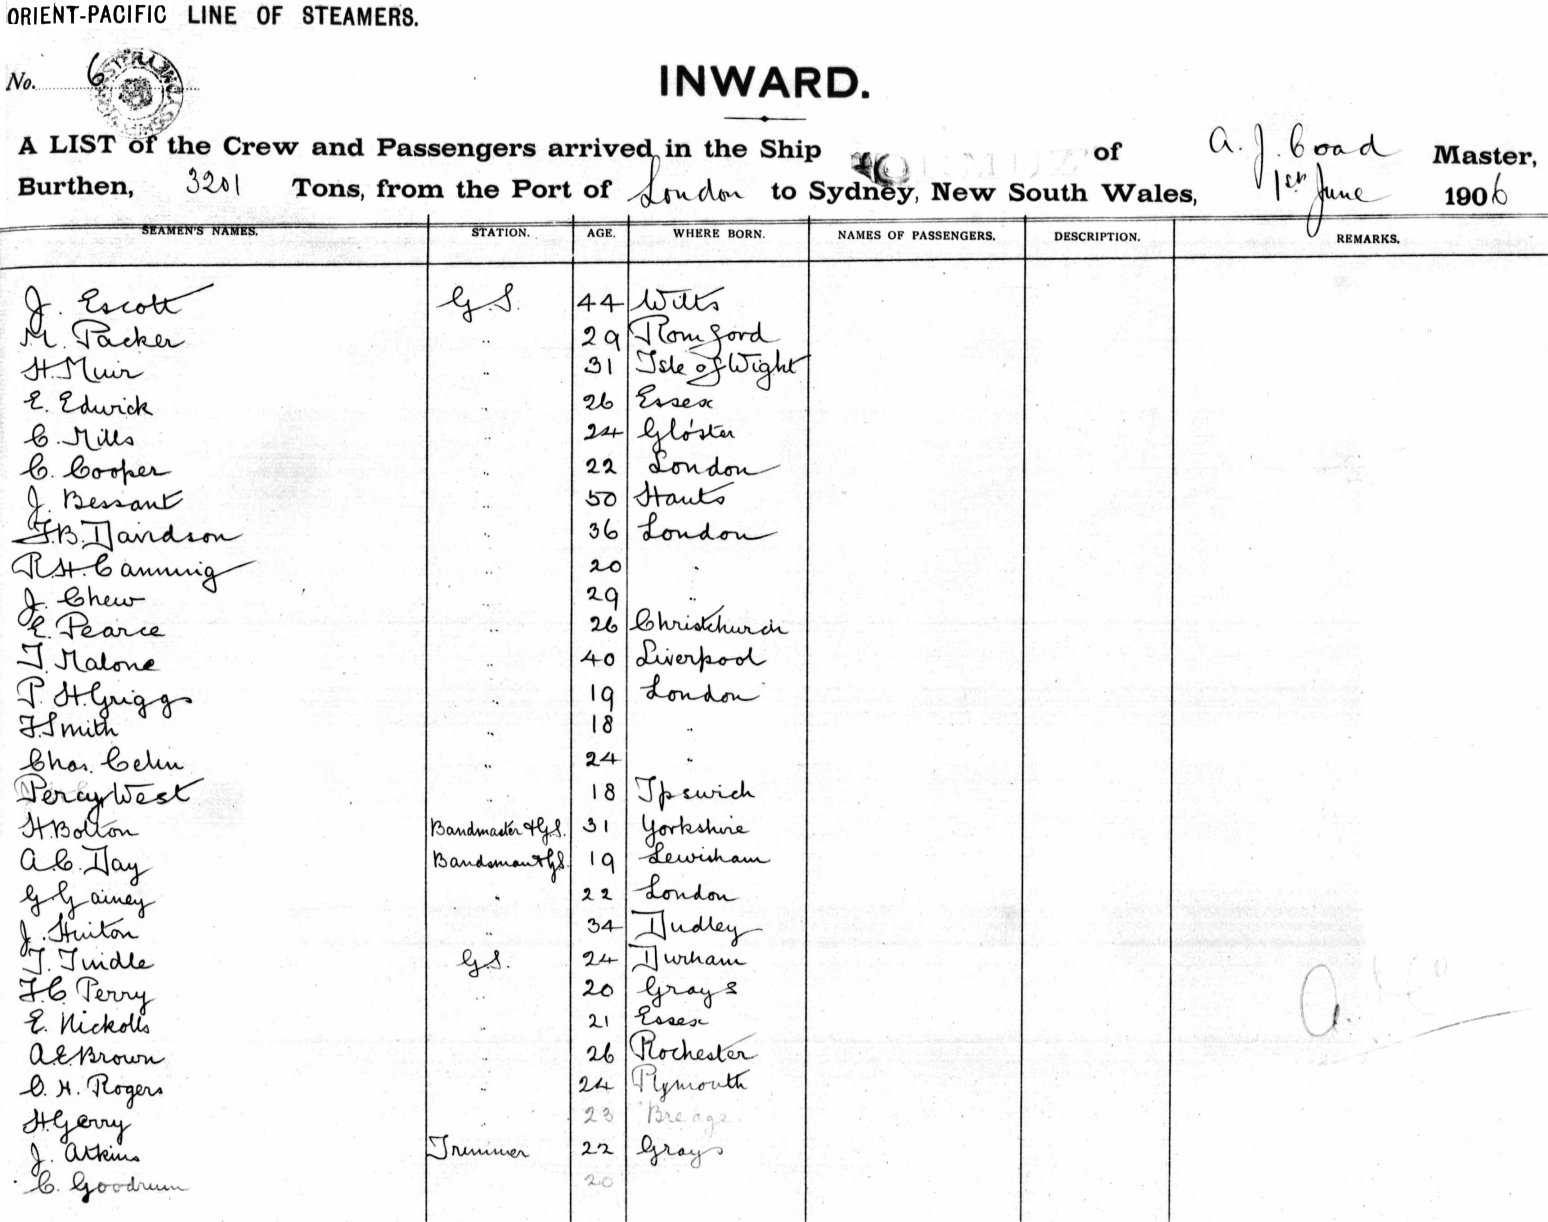 ORIENT-PACIFIC LINE OF STEAMERS.
No. 6
INWARD.
A LIST of the Crew and Passengers arrived in the Ship ORMUZ of A. J. Coad Master,
Burthen, 3201 Tons, from the Port of London to Sydney, New South Wales, 1st June 1906
SEAMEN'S NAMES. STATION. AGE. WHERE BORN. NAMES OF PASSENGERS. DESCRIPTION. REMARKS.
J. Escott G.S. 44 Wilts
M. Packer " 29 Romford
H. Muir " 31 Isle of Wight
E. Edwick " 26 Essex
C. Mills " 24 Glo'ster
C. Cooper " 22 London
J. Bessant " 50 Hants
F.B. Davidson " 36 London
R.H. Canning " 20 "
J. Chew " 29 "
E. Pearce " 26 Christchurch
T. Malone " 40 Liverpool
P. H. Griggs " 19 London
F. Smith " 18 "
Chas. " 24 "
Percy West " 18 Ipswich
H Bolton Bandmaster & G.S. 31 Yorkshire
A.C. Day Bandsman & G.S. 19 Lewisham
G Gainey " 22 London
J. Hinton " 34 Dudley
T. Tindle G.S. 24 Durham
F.C. Perry " 20 Grays
E. Nickolls " 21 Essex
A.E. Brown " 26 Rochester
C. H. Rogers " 24 Plymouth
H Gerry " 23 Breage
J. Atkins Trimmer 22 Grays
C. Goodrum 20